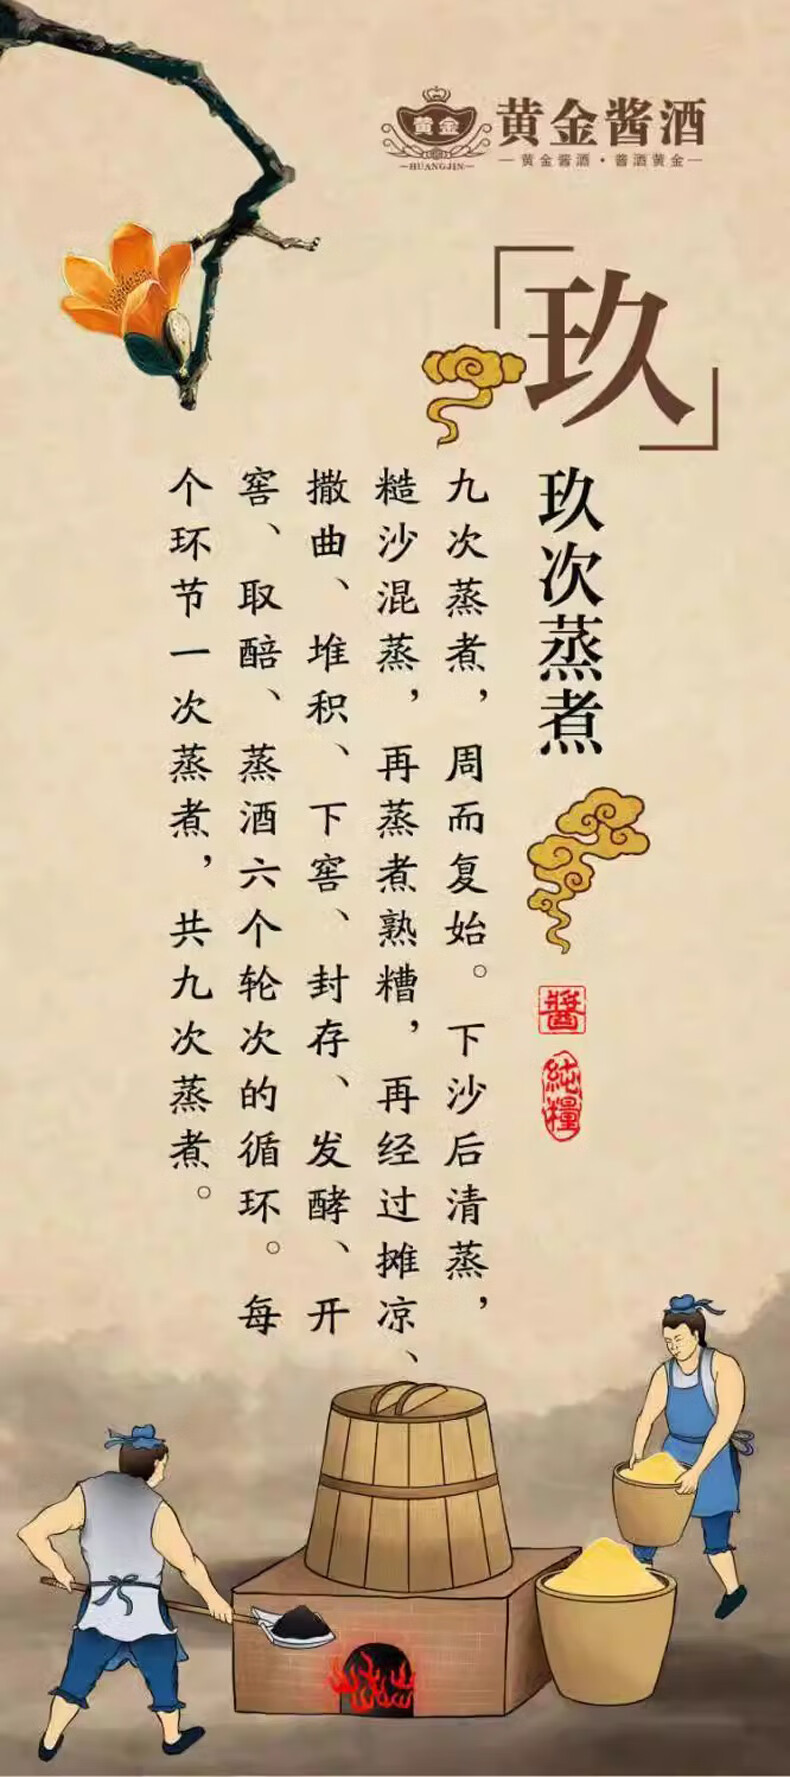 黄金
HUANGJIN
黄金酱酒
黄金酱酒·酱酒黄金
「玖」
玖次蒸煮
醬
純糧
九次蒸煮，周而复始。下沙后清蒸，
糙沙混蒸，再蒸煮熟糟，再经过摊凉、
撒曲、堆积、下窖、封存、发酵、开
窖、取醅、蒸酒六个轮次的循环。每
个环节一次蒸煮，共九次蒸煮。